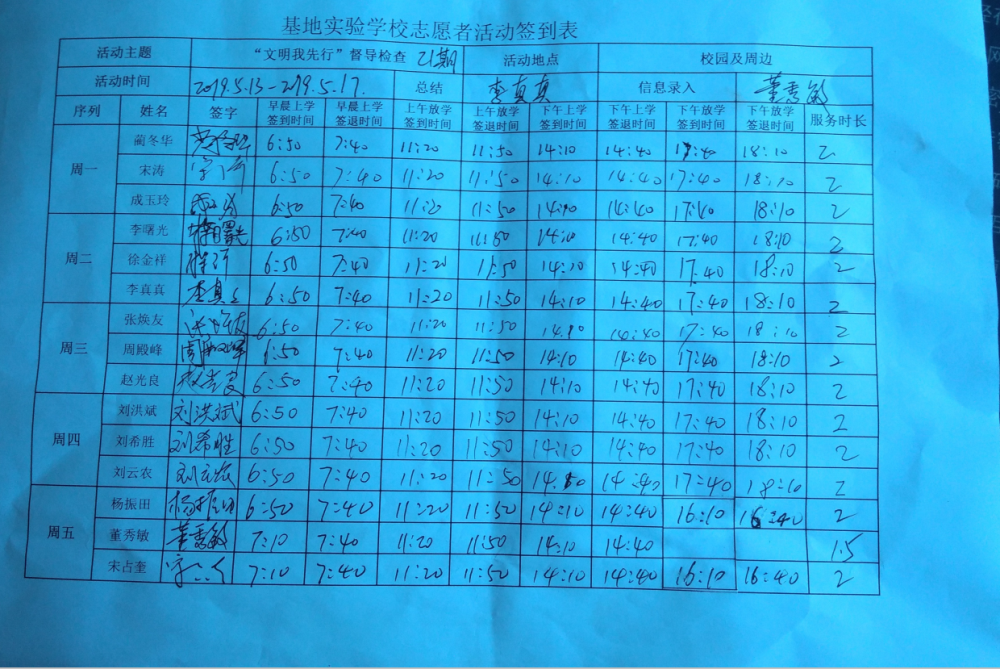 基地实验学校志愿者活动签到表
活动主题 “文明我先行”督导检查 21期 活动地点 校园及周边
活动时间 2019.5.13-2019.5.17. 总结 李真真 信息录入 董秀敏
序列 姓名 签字 早晨上学签到时间 早晨上学签退时间 上午放学签到时间 上午放学签退时间 下午上学签到时间 下午上学签退时间 下午放学签到时间 下午放学签退时间 服务时长
周一 蔺冬华 6:50 7:40 11:20 11:50 14:10 14:40 17:40 18:10 2
宋涛 宋涛 6:50 7:40 11:20 11:50 14:10 14:40 17:40 18:10 2
成玉玲 6:50 7:40 11:20 11:50 14:10 14:40 17:40 18:10 2
周二 李曙光 李曙光 6:50 7:40 11:20 11:50 14:10 14:40 17:40 18:10 2
徐金祥 6:50 7:40 11:20 11:50 14:10 14:40 17:40 18:10 2
李真真 李真真 6:50 7:40 11:20 11:50 14:10 14:40 17:40 18:10 2
周三 张焕友 6:50 7:40 11:20 11:50 14:10 14:40 17:40 18:10 2
周殿峰 周殿峰 6:50 7:40 11:20 11:50 14:10 14:40 17:40 18:10 2
赵光良 赵光良 6:50 7:40 11:20 11:50 14:10 14:40 17:40 18:10 2
周四 刘洪斌 刘洪斌 6:50 7:40 11:20 11:50 14:10 14:40 17:40 18:10 2
刘希胜 刘希胜 6:50 7:40 11:20 11:50 14:10 14:40 17:40 18:10 2
刘云农 刘云农 6:50 7:40 11:20 11:50 14:10 14:40 17:40 18:10 2
周五 杨振田 杨振田 6:50 7:40 11:20 11:50 14:10 14:40 16:10 16:40 2
董秀敏 董秀敏 7:10 7:40 11:20 11:50 14:10 14:40 1.5
宋占奎 7:10 7:40 11:20 11:50 14:10 14:40 16:10 16:40 2